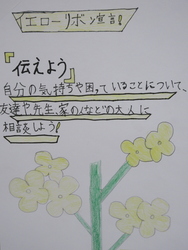 イエローリボン宣言!
『伝えよう』
自分の気持ちや困っていることについて、
友達や先生、家の人などの大人に
相談しよう!